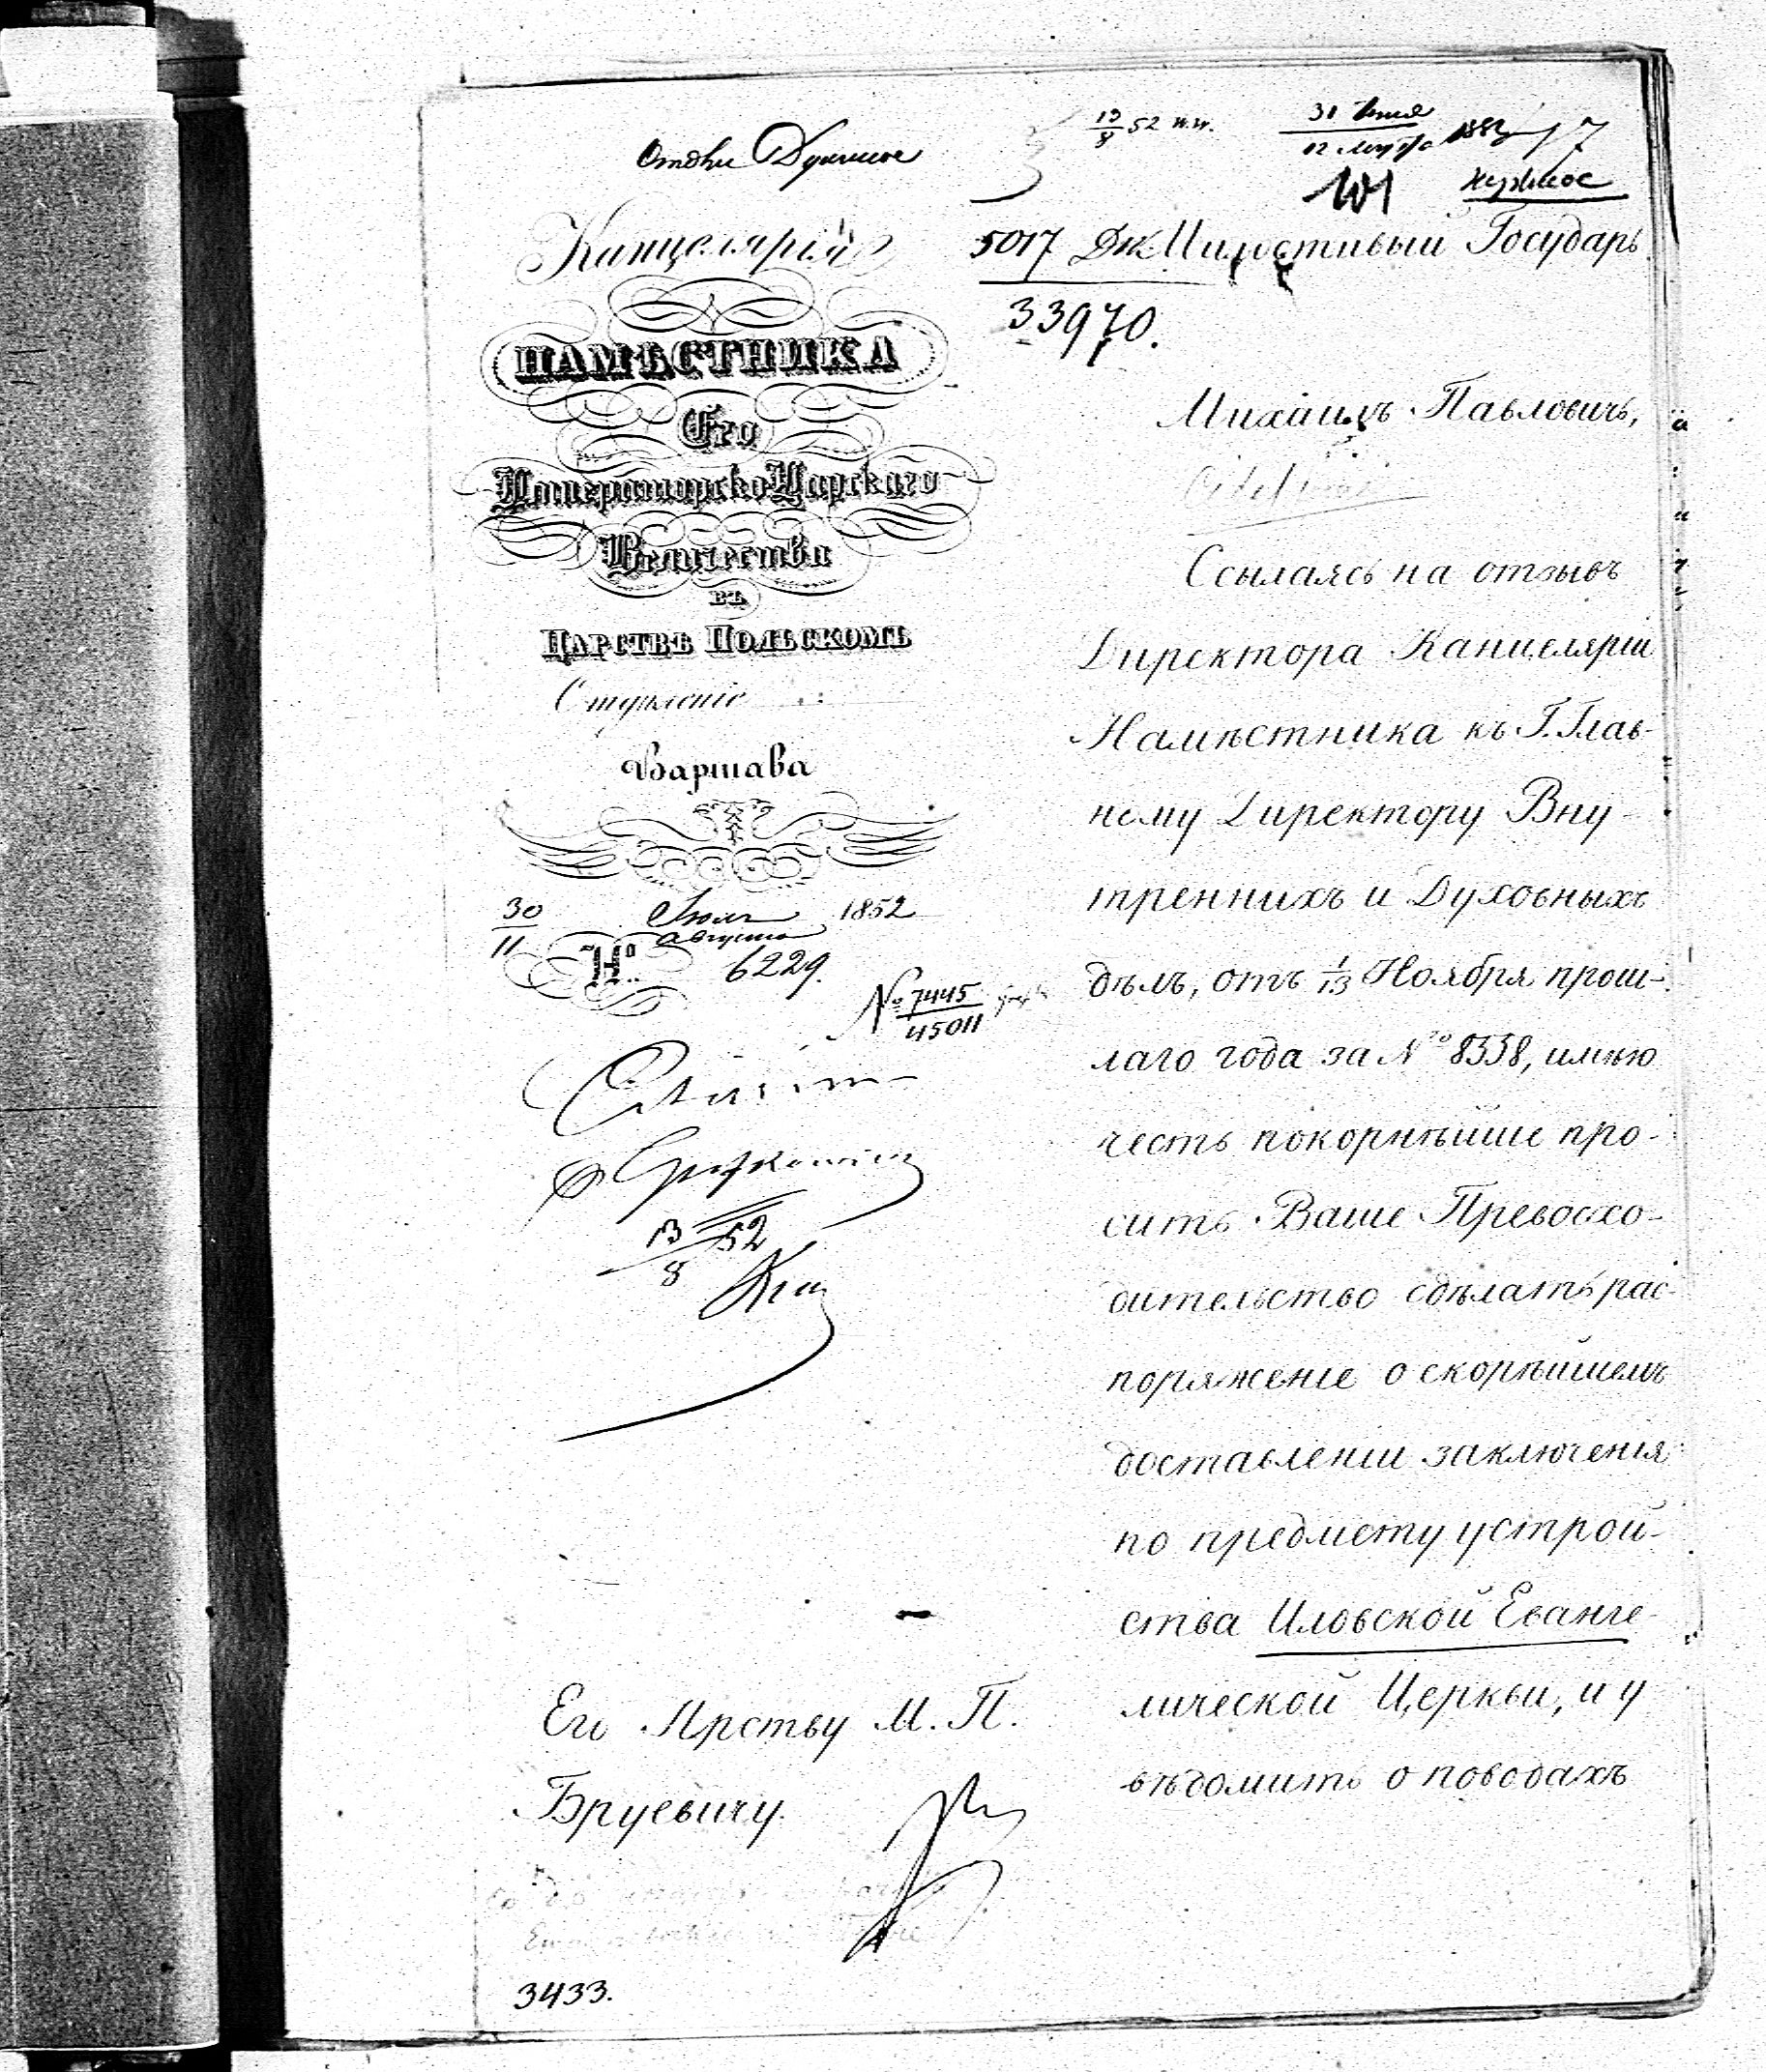 13/8 52
31 Іюля
12 Августа 1852
101
Канцелярія
НАМѢСТНИКА
Его
Императорско Царскаго
Величества
въ
ЦАРСТВѢ ПОЛЬСКОМЪ
Варшава
30/11 Іюля Августа 1852
№ 6229.
№ 7445/45011
13/8 52
Его Пр-ству М. П.
Бруевичу.
3433.
5017
33970.
Милостивый Государь
Михаилъ Павловичъ,
Ссылаясь на отзывъ
Директора Канцеляріи
Намѣстника къ Г. Глав-
ному Директору Вну-
треннихъ и Духовныхъ
дѣлъ, отъ 1/13 Ноября прош-
лаго года за №
имѣю
честь покорнѣйше про-
сить Ваше Превосхо-
дительство сдѣлать рас-
поряженіе о скорѣйшемъ
доставленіи заключенія
по предмету устрой-
ства Иловской Еванге-
лической Церкви, и у
вѣдомить о поводахъ